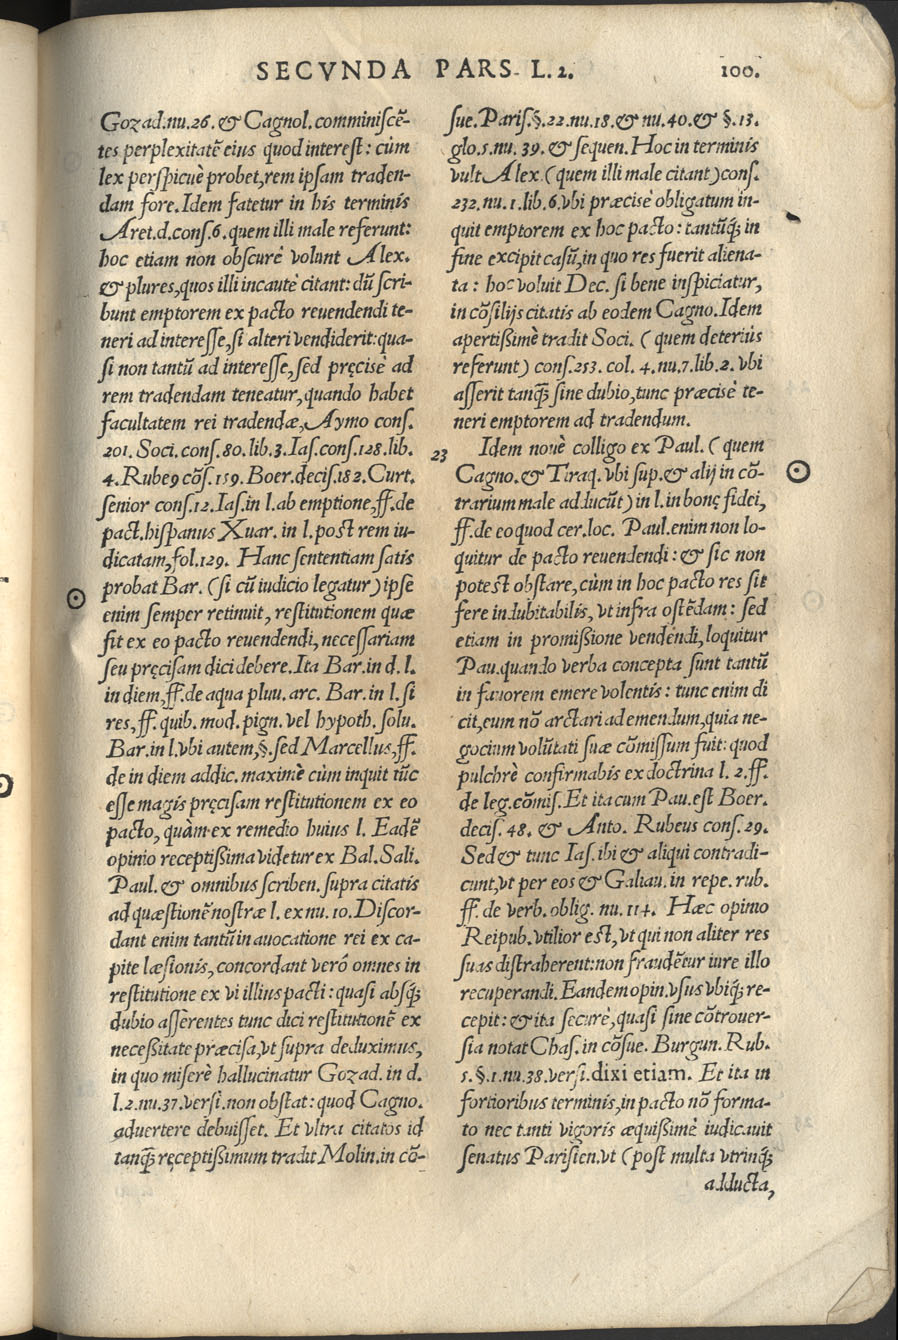 SECVNDA PARS. L. 2. 100.
Gozad.nu.26.& Cagnol.comminiscẽ-
tes perplexitatẽ eius quod interest: cùm
lex perspicuè probet,rem ipsam traden-
dam fore.Idem fatetur in his terminis
Aret.d.cons.6.quem illi male referunt:
hoc etiam non obscurè volunt Alex.
& plures,quos illi incautè citant: dũ scri-
bunt emptorem ex pacto reuendendi te-
neri ad interesse,si alteri vendiderit:qua-
si non tantũ ad interesse,sed pręcisè ad
rem tradendam teneatur,quando habet
facultatem rei tradendæ,Aymo cons.
201. Soci. cons.80.lib.3.Ias.cons.128.lib.
4.Rube9 cõs.159.Boer.decis.182.Curt.
senior cons.12.Ias.in l.ab emptione,ff.de
pact.hispanus Xuar. in l.post rem iu-
dicatam,fol.129. Hanc sententiam satis
probat Bar. (si cũ iudicio legatur) ipse
enim semper retinuit, restitutionem quæ
fit ex eo pacto reuendendi,necessariam
seu pręcisam dici debere.Ita Bar.in d. l.
in diem,ff.de aqua pluu. arc. Bar.in l.si
res,ff.quib.mod.pign.vel hypoth.solu.
Bar.in l.vbi autem,§.sed Marcellus,ff.
de in diem addic.maximè cùm inquit tũc
esse magis pręcisam restitutionem ex eo
pacto, quàm ex remedio huius l. Eadẽ
opinio receptißima videtur ex Bal.Sali.
Paul.& omnibus scriben.supra citatis
ad quæstionẽ nostræ l. ex nu.10.Discor-
dant enim tantũ in auocatione rei ex ca-
pite læsionis,concordant verò omnes in
restitutione ex vi illius pacti: quasi absq́;
dubio asserentes tunc dici restitutionẽ ex
necessitate præcisa,vt supra deduximus,
in quo miserè hallucinatur Gozad.in d.
l.2.nu.37.versi.non obstat: quod Cagno.
aduertere debuisset. Et vltra citatos id
tanq́; ręceptißimum tradit Molin.in cõ-
sue.Paris.§.22.nu.18.& nu.40.& §.13.
glo.5.nu. 39.& sequen. Hoc in terminis
vult Alex.(quem illi male citant)cons.
232.nu.1.lib.6.vbi præcisè obligatum in-
quit emptorem ex hoc pacto: tantũq́; in
fine excipit casũ,in quo res fuerit aliena-
ta : hoc voluit Dec. si bene inspiciatur,
in cõsilijs citatis ab eodem Cagno.Idem
apertißimè tradit Soci. (quem deteriùs
referunt) cons.253. col. 4.nu.7.lib.2. vbi
asserit tanq́; sine dubio,tunc præcisè te-
neri emptorem ad tradendum.
23 Idem nouè colligo ex Paul.(quem
Cagno.& Tiraq.vbi sup.& alij in cõ-
trarium male adducũt) in l.in bonę fidei,
ff.de eo quod cer.loc. Paul.enim non lo-
quitur de pacto reuendendi : & sic non
potest obstare,cùm in hoc pacto res sit
fere indubitabilis, vt infra ostẽdam : sed
etiam in promißione vendendi,loquitur
Pau.quando verba concepta sunt tantũ
in fauorem emere volentis : tunc enim di
cit,eum nõ arctari ad emendum,quia ne-
gocium volũtati suæ cõmissum fuit: quod
pulchrè confirmabis ex doctrina l. 2.ff.
de leg.cõmis.Et ita cum Pau.est Boer.
decis. 48. & Anto. Rubeus cons. 29.
Sed & tunc Ias. ibi & aliqui contradi-
cunt,vt per eos & Galiau.in repe. rub.
ff. de verb. oblig. nu.114. Hæc opinio
Reipub.vtilior est,vt qui non aliter res
suas distraherent:non fraudẽtur iure illo
recuperandi.Eandem opin.vsus vbiq́; re-
cepit: & ita securè,quasi sine cõtrouer-
sia notat Chas.in cõsue. Burgun. Rub.
5.§.1.nu.38.versi.dixi etiam. Et ita in
fortioribus terminis,in pacto nõ forma-
to nec tanti vigoris æquißimè iudicauit
senatus Parisien.vt (post multa vtrinq́;
adducta,